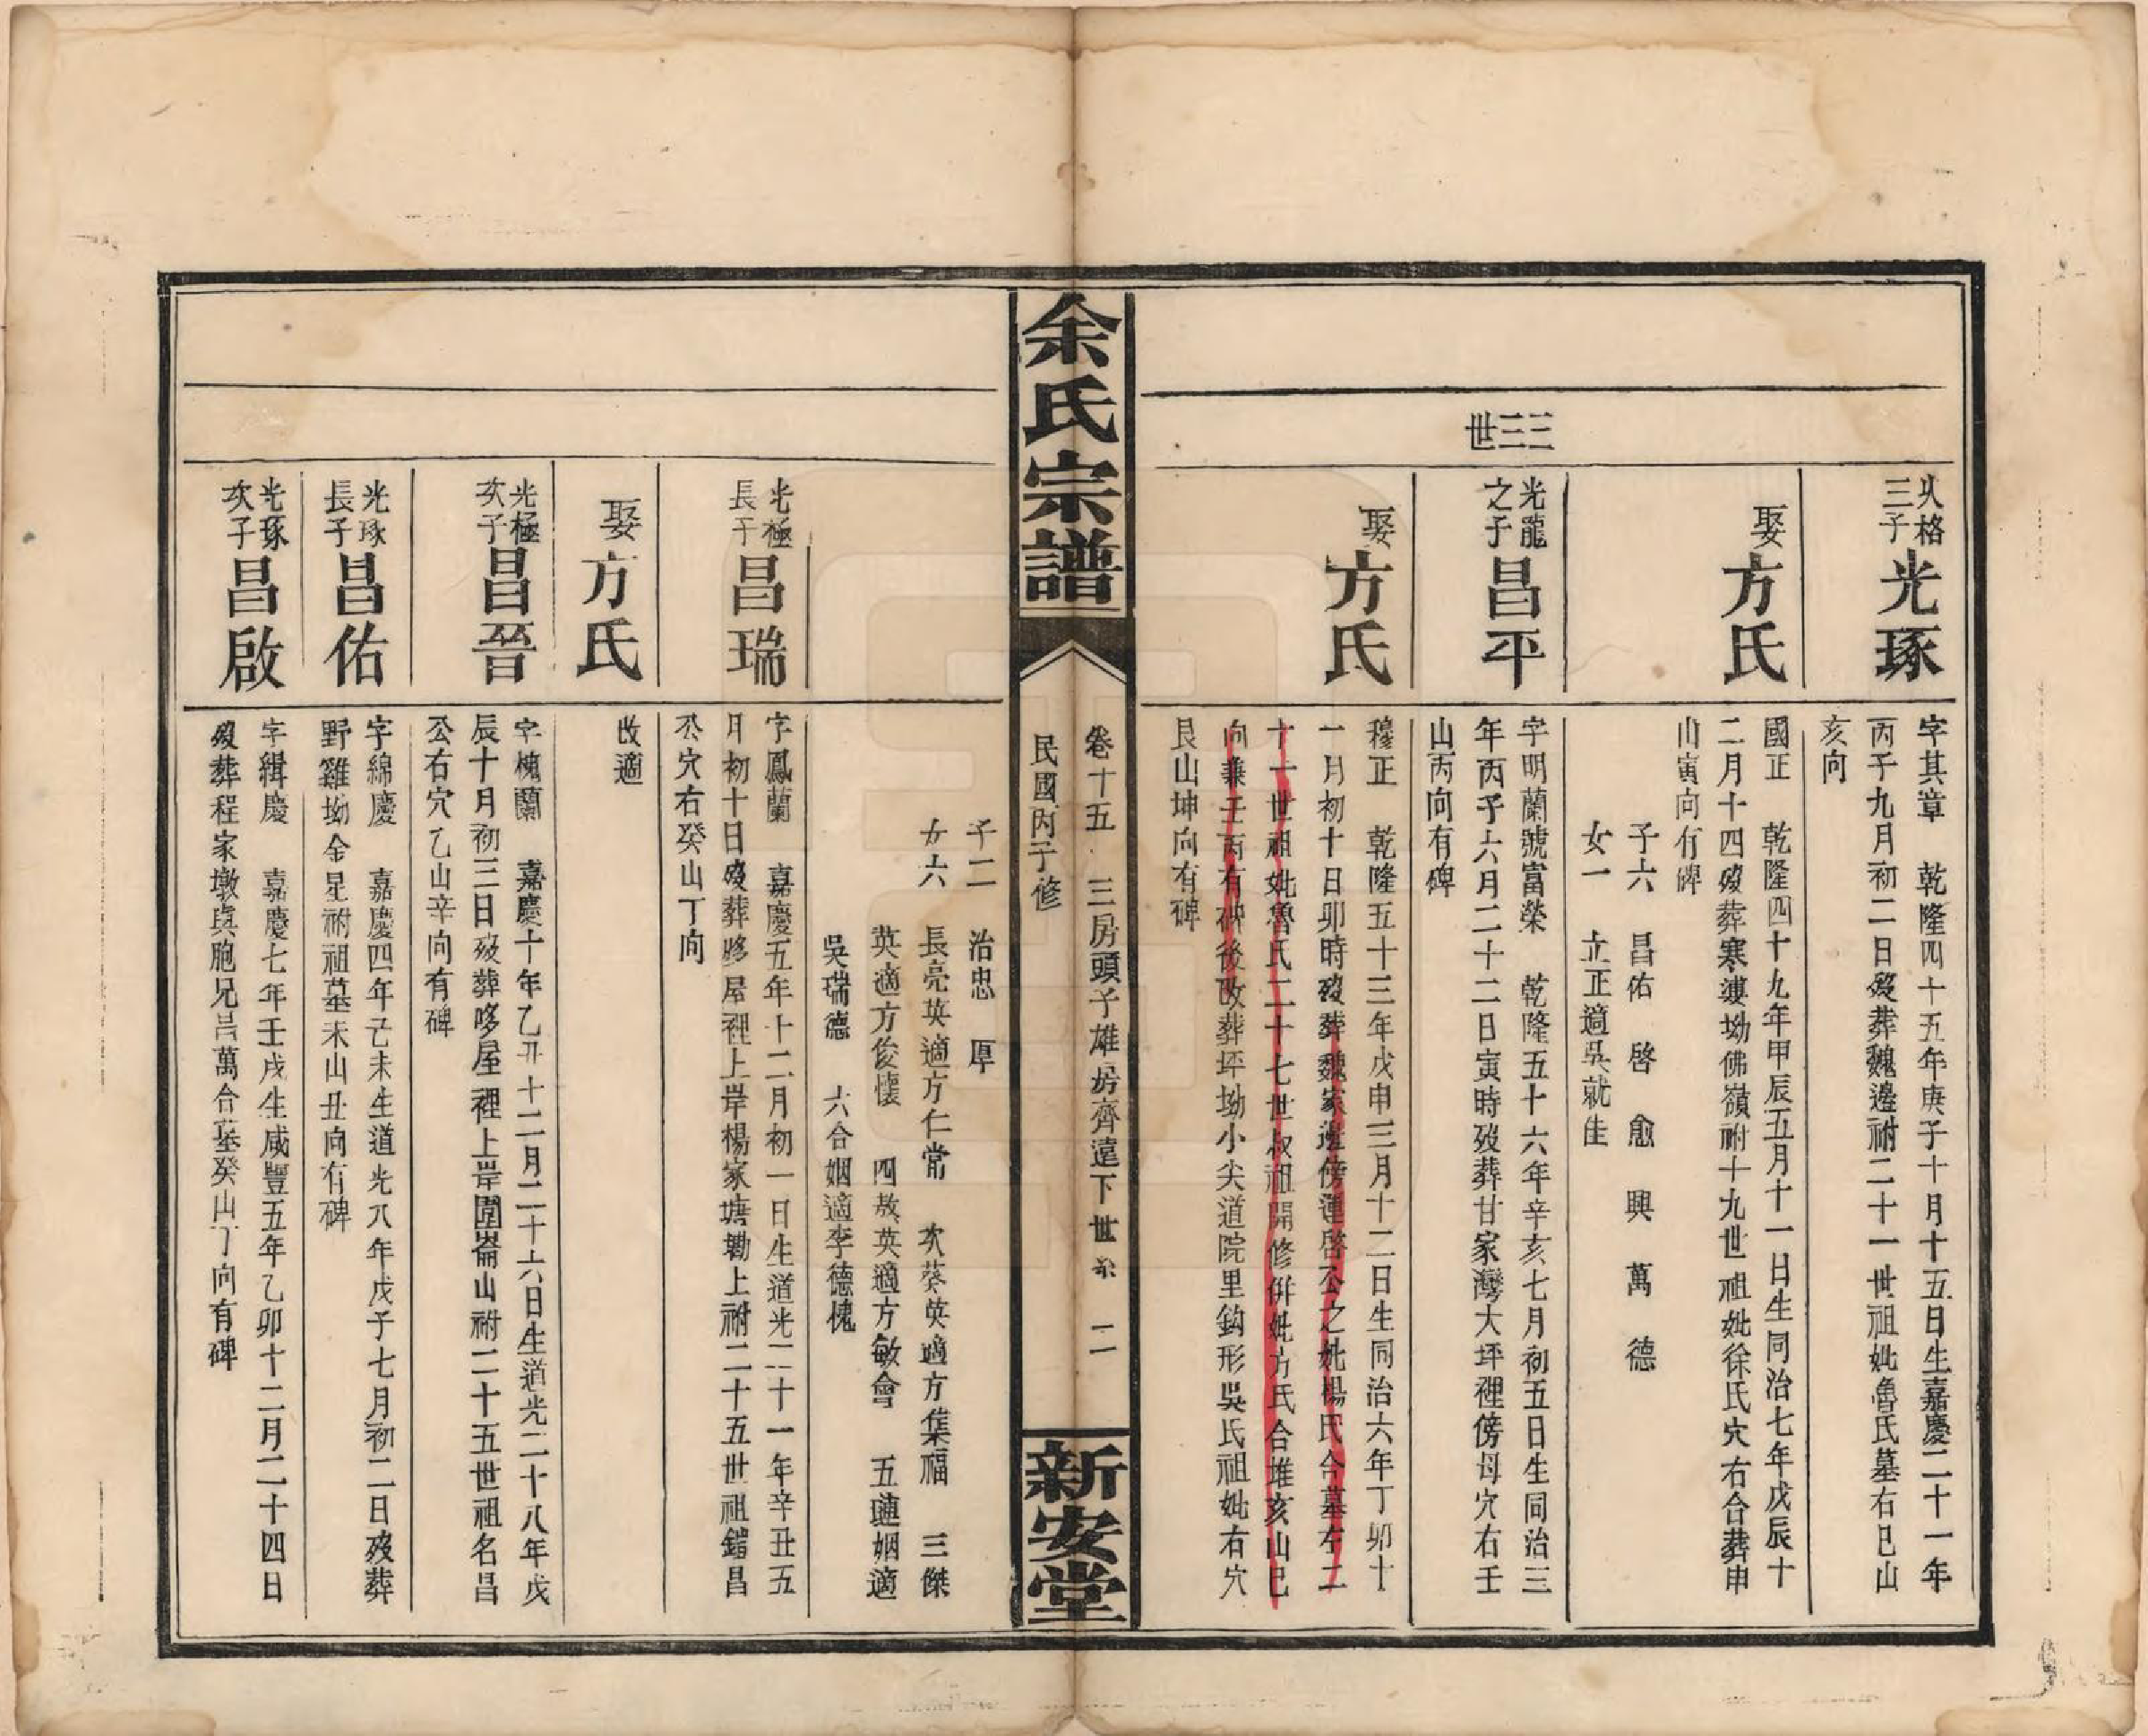 三子
光琢
字其章　乾隆四十五年庚子十月十五日生嘉慶二十一年
丙子九月初二日歿葬魏邊祔二十一世祖妣魯氏墓右巳山
亥向
娶
方氏
國正　乾隆四十九年甲辰五月十一日生同治七年戊辰十
二月十四歿葬寒婆坳佛嶺祔十九世祖妣徐氏穴右合葬申
山寅向有碑
子六　昌佑　啓　愈　興　萬　德
女一　立正適吳就佳
三三世
光龍
之子
昌平
字明蘭號富榮　乾隆五十六年辛亥七月初五日生同治三
年丙子六月二十二日寅時歿葬甘家灣大坪裡傍母穴右壬
山丙向有碑
娶
方氏
穆正　乾隆五十三年戊申三月十二日生同治六年丁卯十
一月初十日卯時歿葬魏家邊傍運啓公之妣楊氏合墓左二
十一世祖妣魯氏二十七世叔祖開修併妣方氏合堆亥山巳
向兼壬丙有碑後改葬坪坳小尖道院里鈎形吳氏祖妣右穴
艮山坤向有碑
余氏宗譜
卷十五　三房頭子雄房齊遠下世系　二
民國丙子修
新安堂
子二　治忠　厚
女六　長亮英適方仁常　次葵英適方集福　三傑
英適方俊懷　四敖英適方敏會　五璉姻適
吳瑞德　六合姻適李德槐
光極
長子
昌瑞
字鳳蘭　嘉慶五年十二月初一日生道光二十一年辛丑五
月初十日歿葬哆屋裡上岸楊家塘墈上祔二十五世祖鍇昌
公穴右癸山丁向
娶
方氏
改適
光極
次子
昌晉
字槐蘭　嘉慶十年乙丑十二月二十六日生道光二十八年戊
辰十月初三日歿葬哆屋裡上岸圍崙山祔二十五世祖名昌
公右穴乙山辛向有碑
光琢
長子
昌佑
字綿慶　嘉慶四年己未生道光八年戊子七月初二日歿葬
野雞坳金星祔祖墓未山丑向有碑
光琢
次子
昌啟
字緝慶　嘉慶七年壬戌生咸豐五年乙卯十二月二十四日
歿葬程家墩與胞兄昌萬合墓癸山丁向有碑